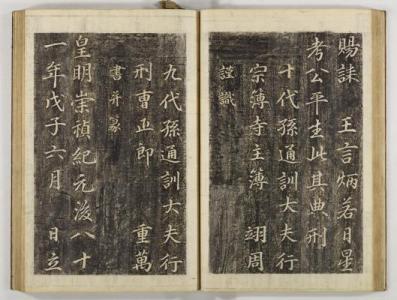 賜誄 王言炳若日星
考公平生此其典刑
十代孫通訓大夫行
宗簿寺主簿 翊周
謹識
九代孫通訓大夫行
刑曹正郎 重萬
書并篆
皇明崇禎紀元後八十
一年戊子六月 日立